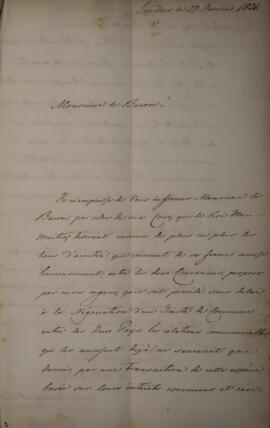 Londres le 27 Fevrier 1826.
Monsieur le Baron
Je m'empresse de Vous informer Monsieur le
Baron, par ordre de ma Cour, que le Roi Mon
Maitre, désirant resserrer de plus en plus les
liens d'amitié, qui viennent de se former aussi
heureusement entre les deux Couronnes, propose
par mon organe, qu'il soit procédé sans délai
à la Négociation d'un Traité de Commerce
entre les deux Pays. Les relations commerciales
qui les unissent déjà, ne sauraient que
gagner par une transaction de cette espèce
basée sur leurs interêts communs et